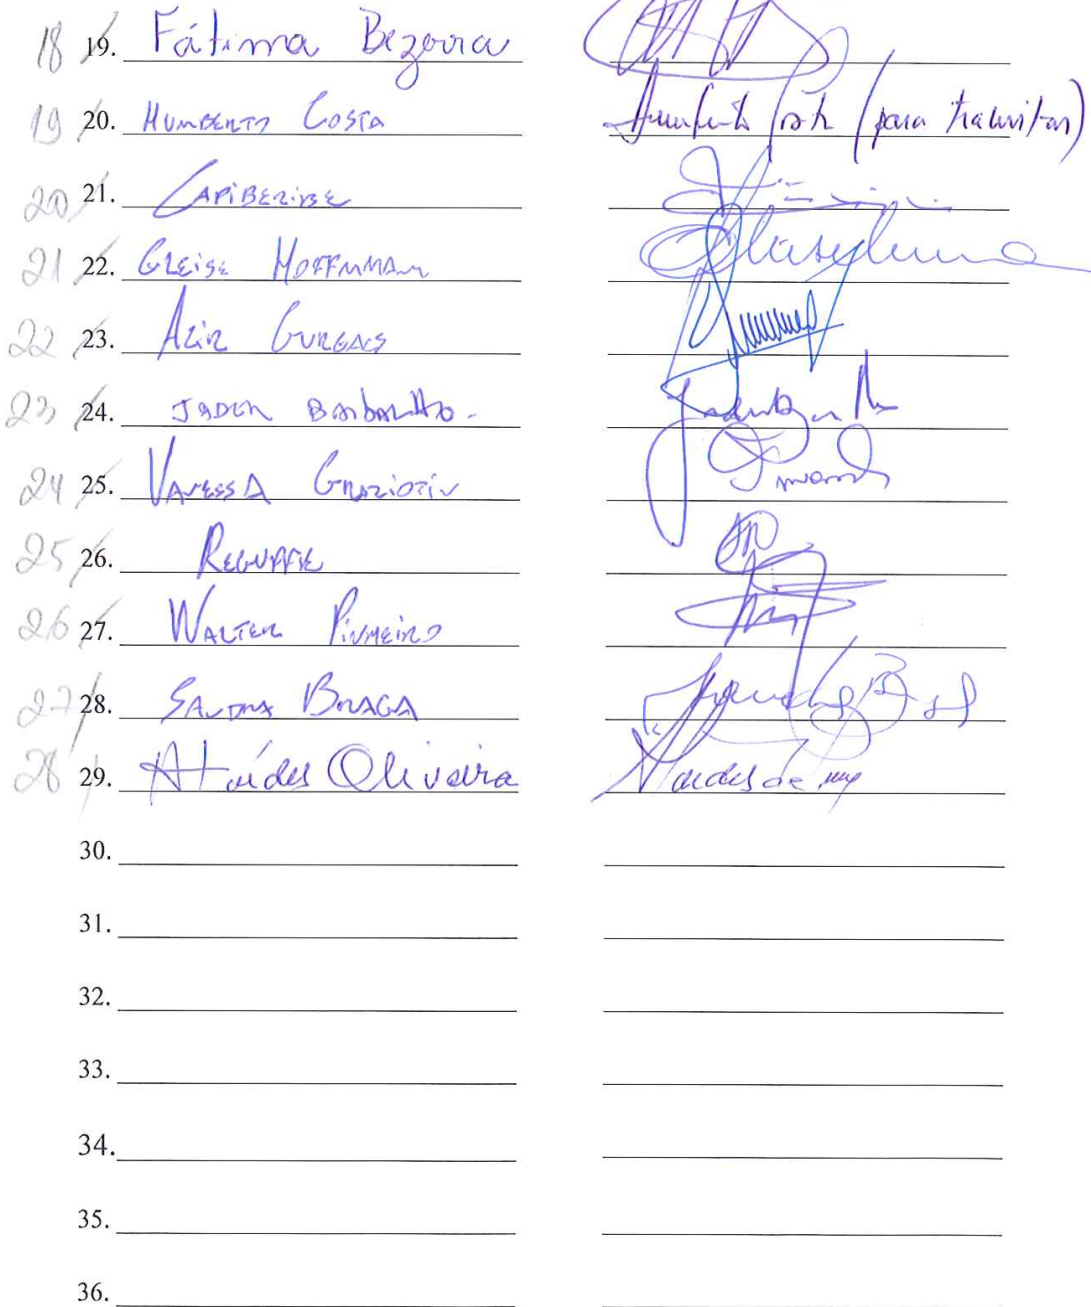 18 19. Fátima Bezerra
19 20. Humberto Costa Humberto Costa (para tramitar)
20 21. Capiberibe
21 22. Gleise Hoffmmam
22 23. Acir Gurgacs
23 24. Jader Barbalho.
24 25. Vanessa Graziotin
25 26. Reguffe
26 27. Walter Pinheiro
27 28. Sandra Braga
28 29. Ataídes Oliveira
30.
31.
32.
33.
34.
35.
36.